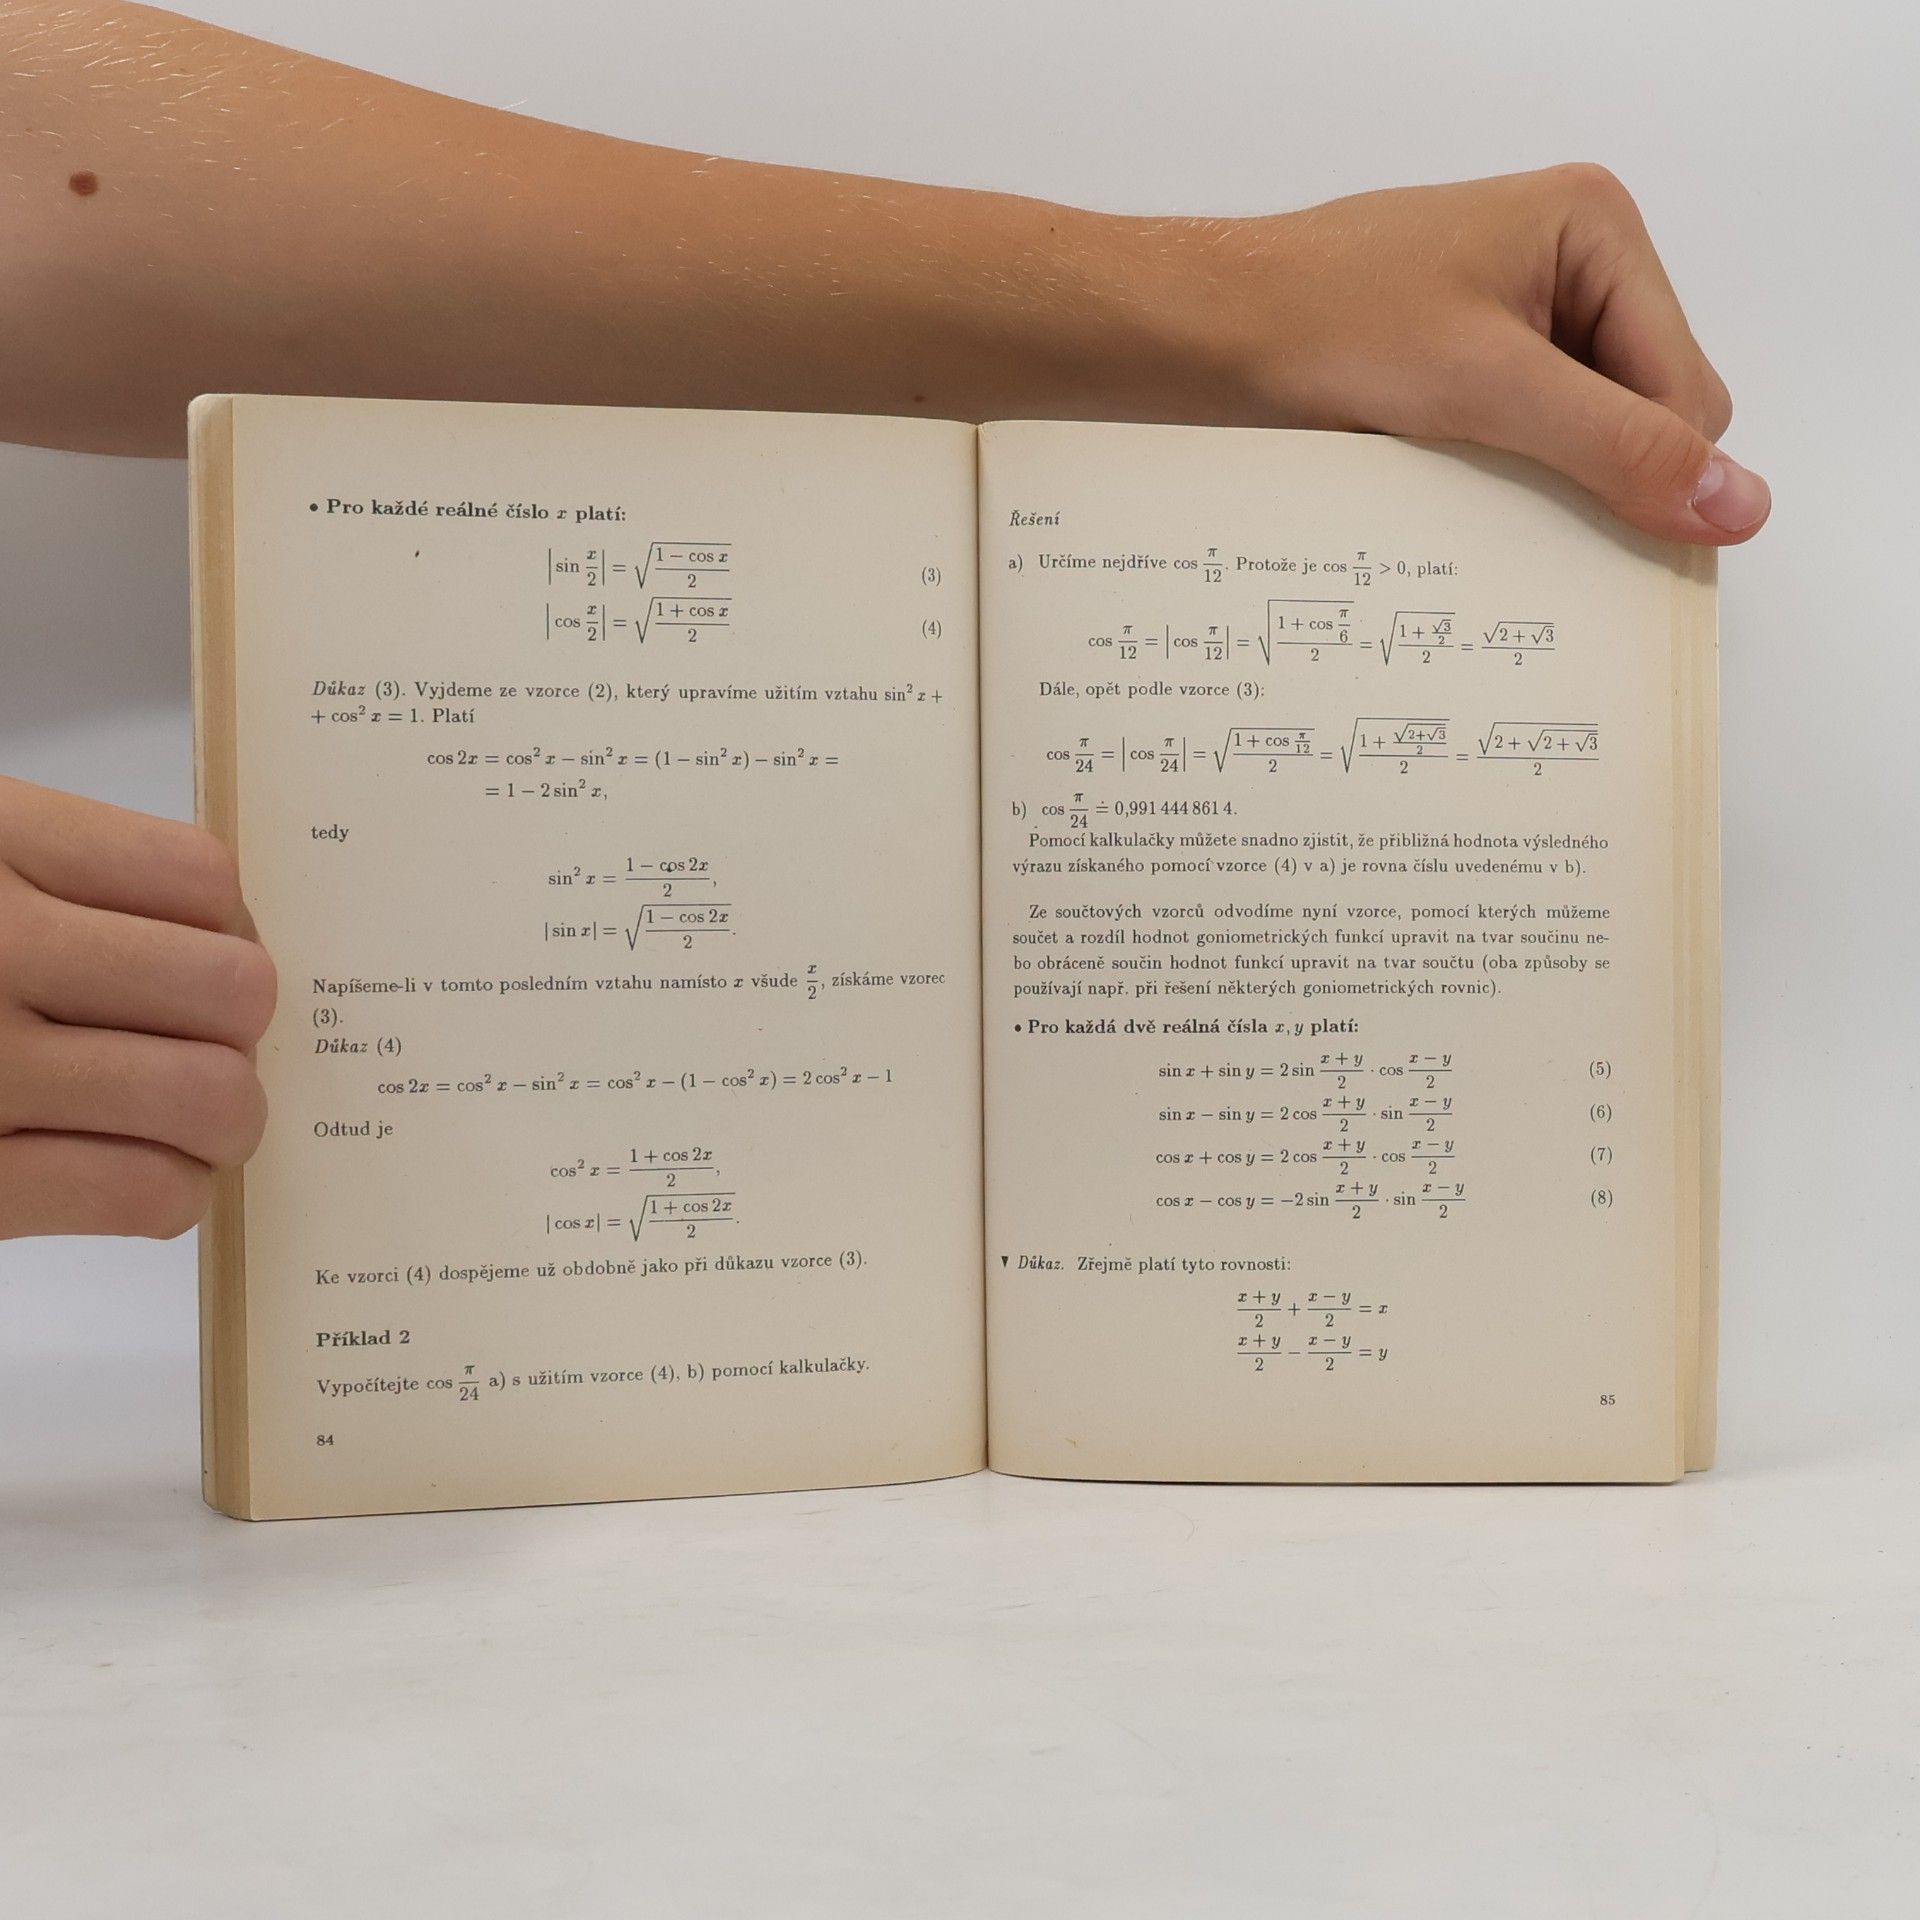 • Pro každé reálné číslo x platí:
|sin x/2| = √((1 − cos x)/2) (3)
|cos x/2| = √((1 + cos x)/2) (4)
Důkaz (3). Vyjdeme ze vzorce (2), který upravíme užitím vztahu sin² x +
+ cos² x = 1. Platí
cos 2x = cos² x − sin² x = (1 − sin² x) − sin² x =
= 1 − 2 sin² x,
tedy
sin² x = (1 − cos 2x)/2,
|sin x| = √((1 − cos 2x)/2).
Napíšeme-li v tomto posledním vztahu namísto x všude x/2, získáme vzorec
(3).
Důkaz (4)
cos 2x = cos² x − sin² x = cos² x − (1 − cos² x) = 2 cos² x − 1
Odtud je
cos² x = (1 + cos 2x)/2,
|cos x| = √((1 + cos 2x)/2).
Ke vzorci (4) dospějeme už obdobně jako při důkazu vzorce (3).
Příklad 2
Vypočítejte cos π/24 a) s užitím vzorce (4), b) pomocí kalkulačky.
84
Řešení
a) Určíme nejdříve cos π/12. Protože je cos π/12 > 0, platí:
cos π/12 = |cos π/12| = √((1 + cos π/6)/2) = √((1 + √3/2)/2) = √(2 + √3)/2
Dále, opět podle vzorce (3):
cos π/24 = |cos π/24| = √((1 + cos π/12)/2) = √((1 + √(2+√3)/2)/2) = √(2 + √(2 + √3))/2
b) cos π/24 ≐ 0,991 444 861 4.
Pomocí kalkulačky můžete snadno zjistit, že přibližná hodnota výsledného
výrazu získaného pomocí vzorce (4) v a) je rovna číslu uvedenému v b).
Ze součtových vzorců odvodíme nyní vzorce, pomocí kterých můžeme
součet a rozdíl hodnot goniometrických funkcí upravit na tvar součinu ne-
bo obráceně součin hodnot funkcí upravit na tvar součtu (oba způsoby se
používají např. při řešení některých goniometrických rovnic).
• Pro každá dvě reálná čísla x, y platí:
sin x + sin y = 2 sin (x + y)/2 · cos (x − y)/2 (5)
sin x − sin y = 2 cos (x + y)/2 · sin (x − y)/2 (6)
cos x + cos y = 2 cos (x + y)/2 · cos (x − y)/2 (7)
cos x − cos y = −2 sin (x + y)/2 · sin (x − y)/2 (8)
▼ Důkaz. Zřejmě platí tyto rovnosti:
(x + y)/2 + (x − y)/2 = x
(x + y)/2 − (x − y)/2 = y
85